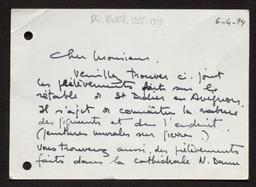 6-4-79
Cher Monsieur,
Veuillez trouver ci-joint
les prélèvements faits sur le
rétable de St Didier en Avignon.
Il s'agit de connaître la nature
des pigments et de l'enduit
(peintures murales sur pierre)
Vous trouverez aussi, des prélèvements
faits dans la cathédrale N. Dame